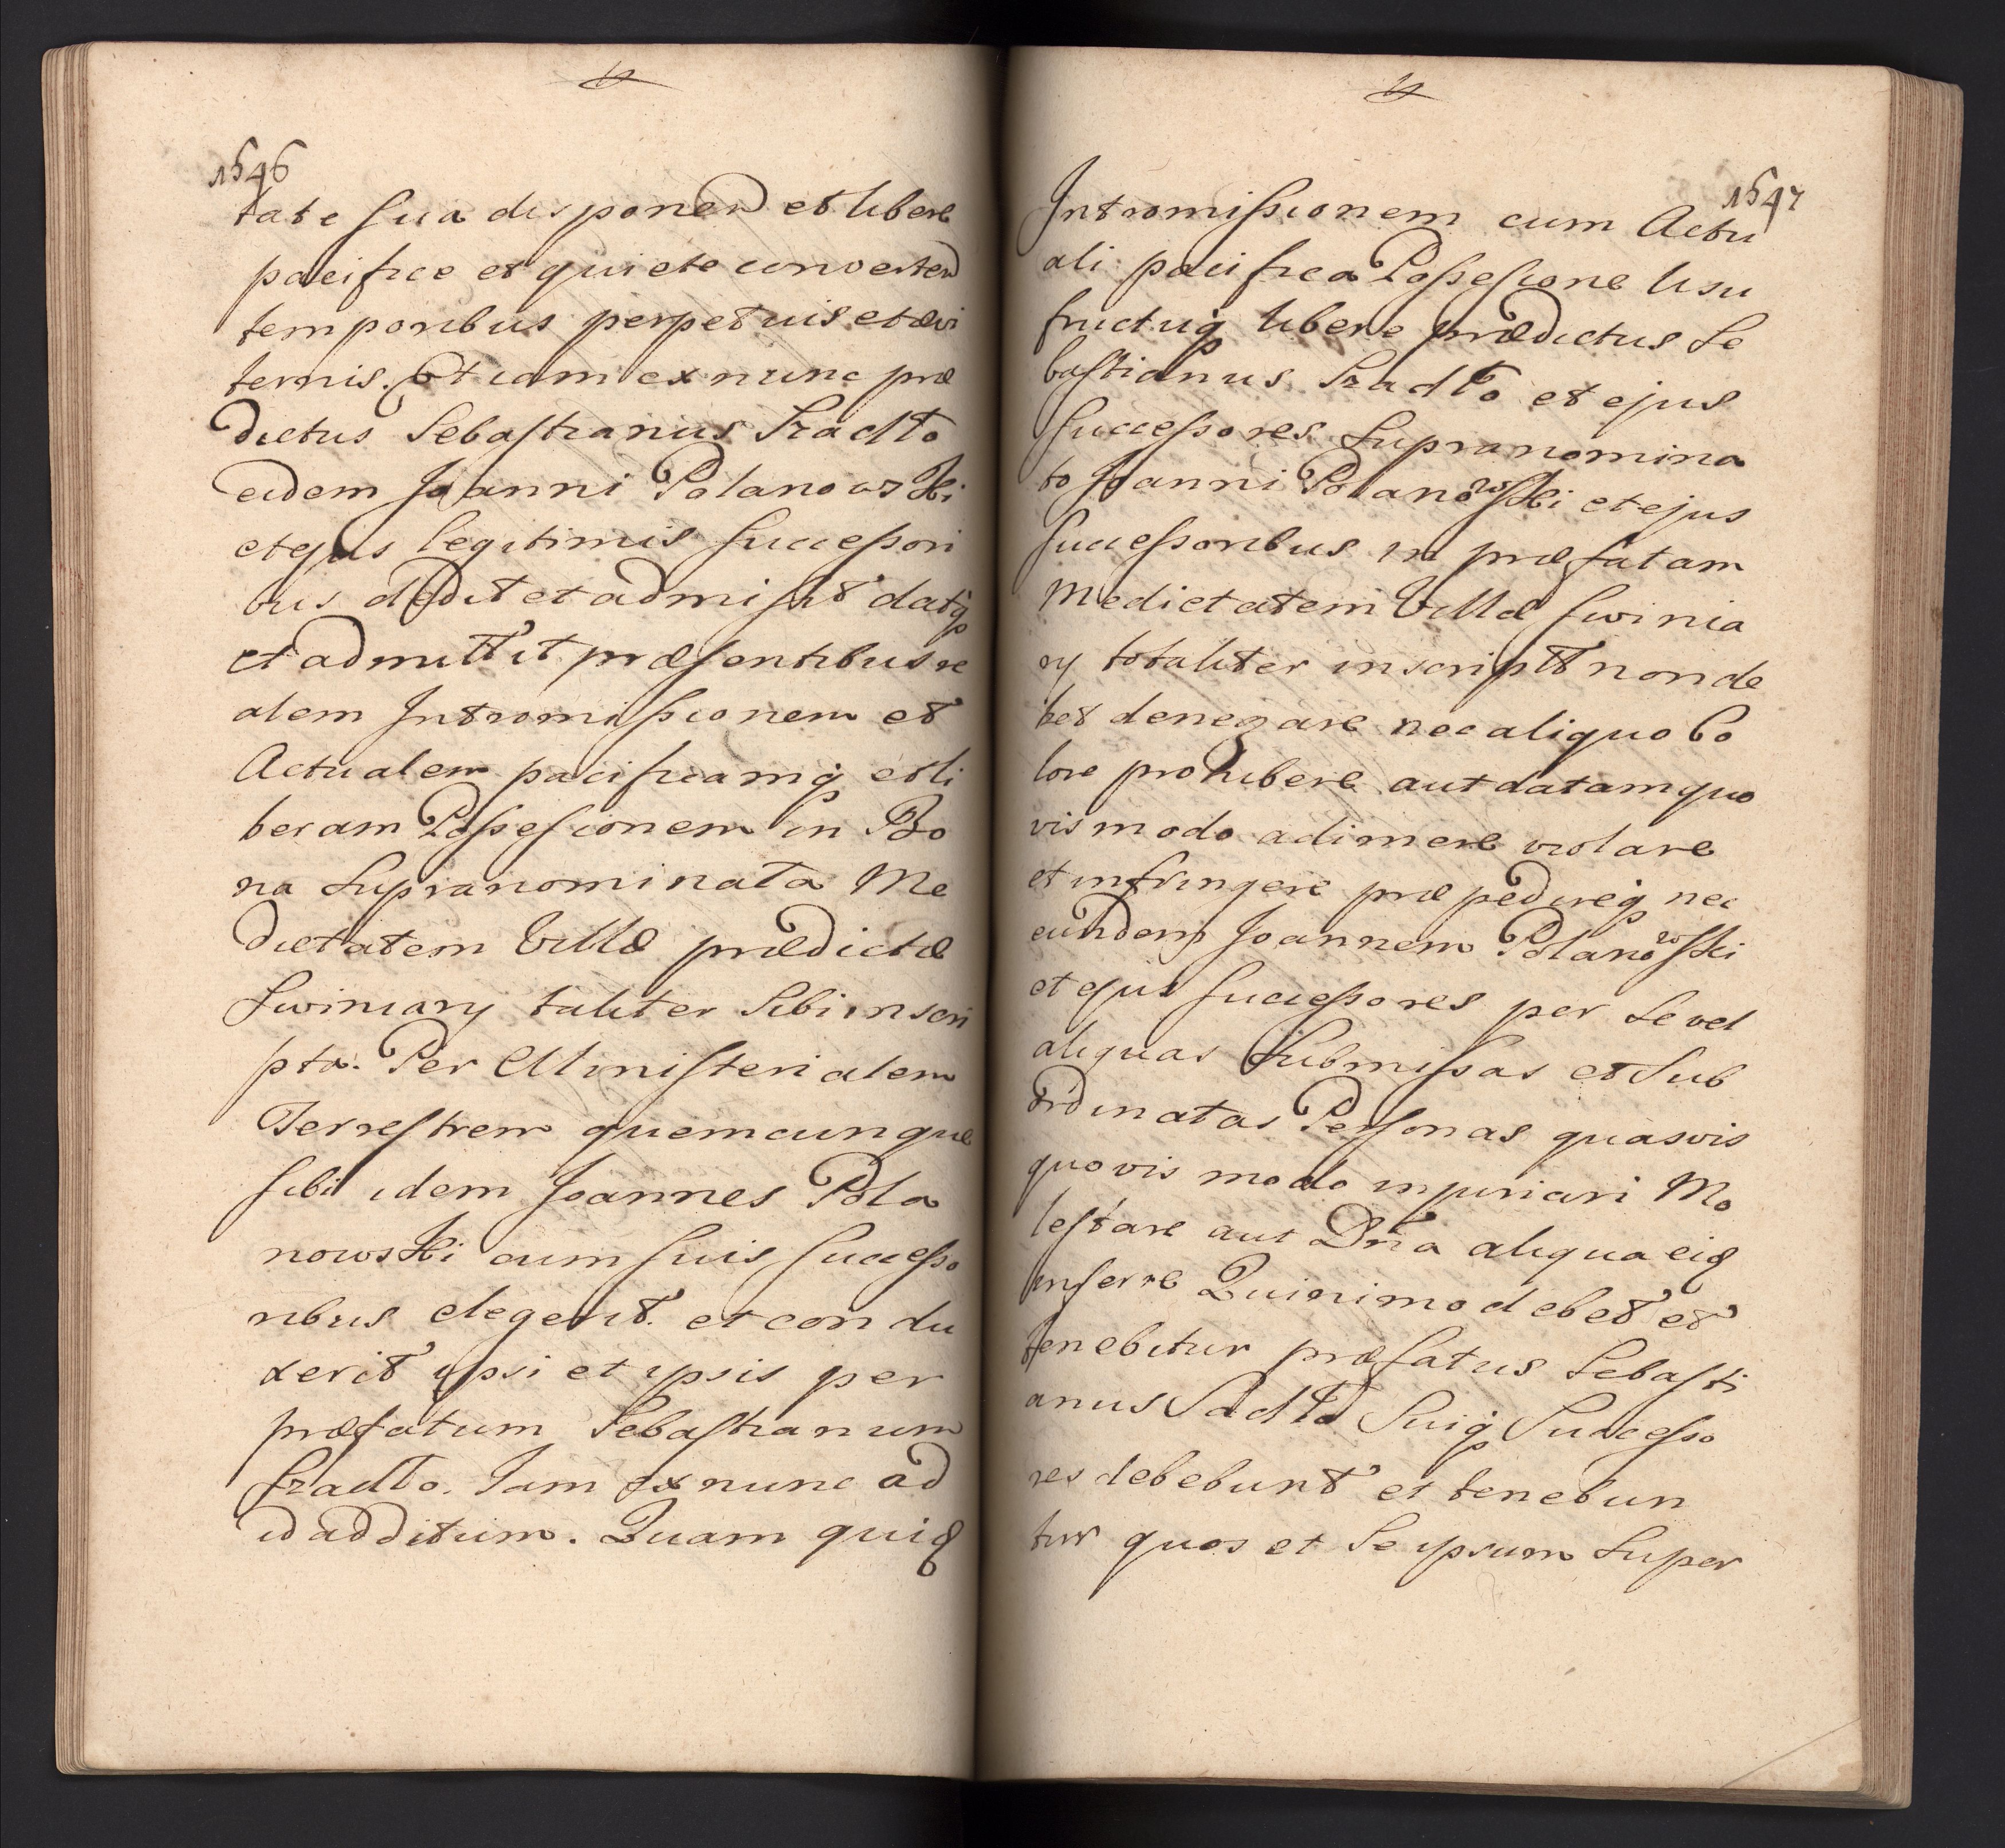 1546
tate sua disponen et libere
pacifice et quiete converten
temporibus perpetuis et ævi
ternis. Et iam ex nunc præ
dictus Sebastianus Szadło
eidem Joanni Polanowski
et ejus legitimis successori
bus dedit et admisit datq
et admittit præsentibus re
alem Intromissionem et
Actualem pacificamq et li
beram Possessionem in Bo
na Supranominata Me
dietatem Villæ prædictæ
Swiniary taliter Sibi inscri
pta. Per Ministerialem
Terrestrem quemcunque
sibi idem Joannes Pola
nowski cum suis successo
ribus elegerit et condu
xerit ipsi et ipsis per
præfatum Sebastianum
Szadlo. Iam ex nunc ad
id additum. Quam quiq
1547
Intromissionem cum Actu
ali pacifica Possessione Usu
fructuq libere prædictus Se
bastianus Szadło et ejus
Successores Supranomina
to Joanni Polanowski et ejus
successoribus in præfatam
Medietatem Villæ Swinia
ry totaliter inscriptt non de
bet denegare nec aliquo Co
lore prohibere aut datam quo
vis modo adimere violare
et infringere præpedireq nec
eundem Joannem Polanowski
et ejus successores per Se vel
aliquas Submissas et Sub
ordinatas Personas quasvis
quovis modo injuriari Mo
lestare aut Dna aliqua eis
inferre Quinimo debet et
tenebitur præfatus Sebasti
anus Sadło Suiq Successo
res debebunt et tenebun
tur quos et Se ipsum Super